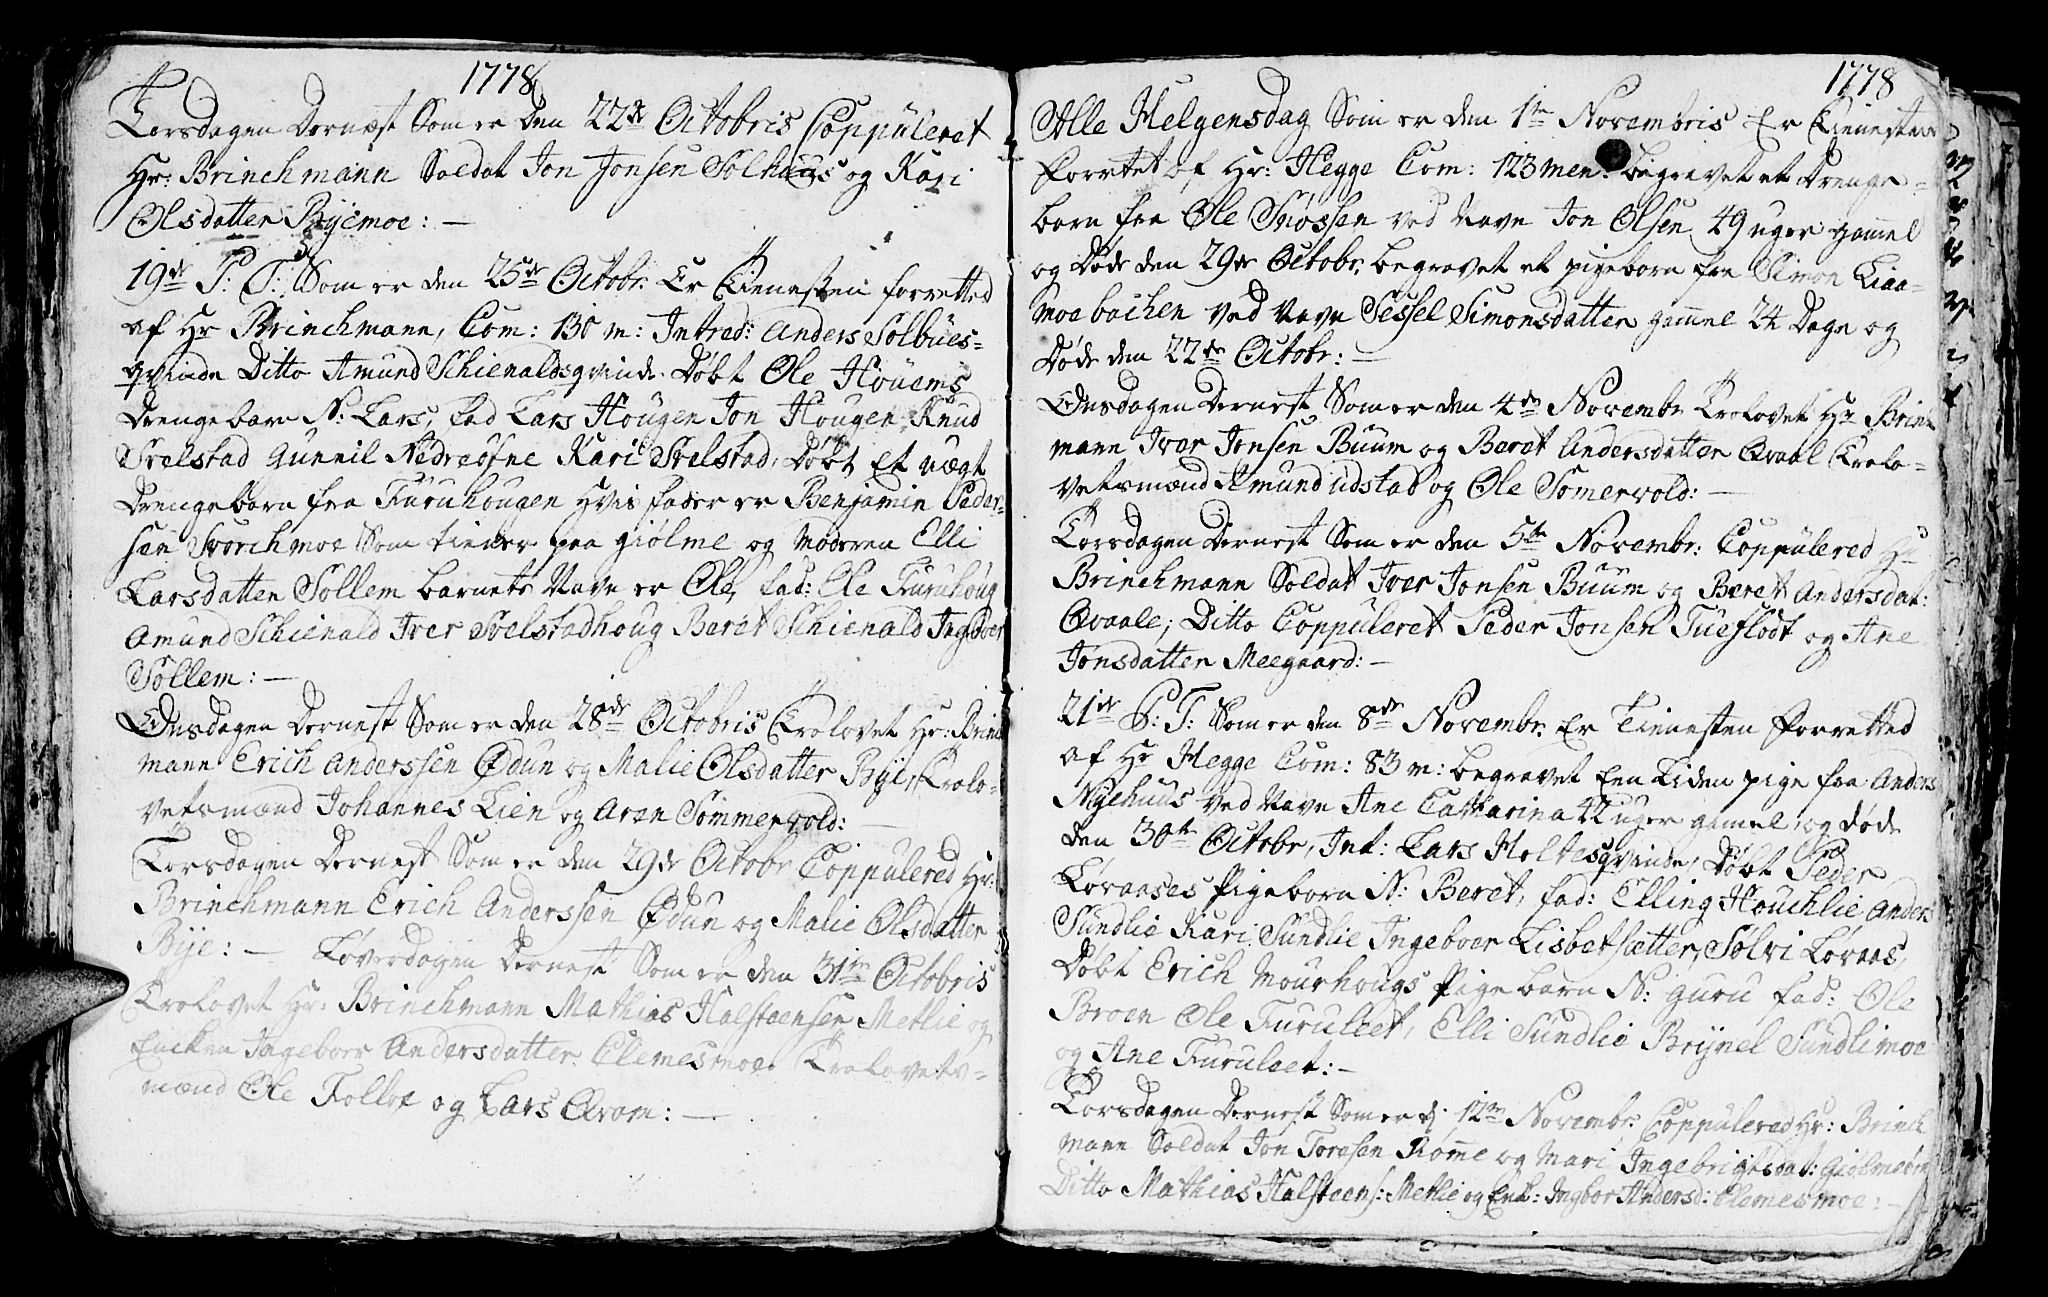 1778
Torsdagen Dernæst Som er Den 22de Octobris Coppuleret
Hr: Brinchmann Soldat Jon Jonsen Solhuus og Kari
Olsdatter Byemoe: —
19de P: T: Som er den 25de Octobr: Er Tienesten forretted
af Hr Brinchmann, Com: 130 m: Introd: Anders Solbues-
qvinde Ditto Amund Schienaldsqvinde Døbt Ole Houems
Drengebarn N: Lars, fad Lars Hougen Jon Hougen Knud
Svelstad Gunnil Nedreøfne Kari Svelstad, Døbt Et uægt
Drengebarn fra Furuhougen hvis fader er Benjamin Peder-
sen Svorchmoe Som tiener paa Giølme og Moderen Elli
Larsdatter Sollem barnets Navn er Ole, fad: Ole Furuhoug
Amund Schienald Iver Svelstadhoug Beret Schienald Ingeboer
Sollem: —
Onsdagen Dernest Som er den 28de Octobris Trolovet Hr: Brinch
mann Erich Anderssen Ødun og Malie Olsdatter Bye, Trolo-
vetsmænd Johannes Lien og Aren Sommervold: —
Torsdagen Dernest Som er den 29de Octobr Coppulered Hr:
Brinchmann Erich Anderssen Ødun og Malie Olsdatter
Bye: — Løverdagen Dernest Som er den 31te Octobris
Trolovet Hr: Brinchmann Mathias Halsteensen Metlie og
Encken Ingeboer Andersdatter Clemesmoe Trolovets-
mænd Ole Folloe og Lars Qvam: —
1778
Alle Helgensdag Som er den 1te Novembris Er Tienesten
Forretet af Hr: Hegge Com: 123 men: begravet et Drenge-
barn fra Ole Snøssen ved Navn Jon Olsen 49 uger gammel
og Døde den 29de Octobr. begravet et pigebarn fra Simon Liaa-
moebachen ved Navn Sessel Simonsdatter gammel 24 Dage og
Døde den 22de Octobr: —
Onsdagen Dernest Som er den 4de Novembr Trolovet Hr Brinch
mann Iver Jonsen Buum og Beret Andersdatter Qvaal Trolo-
vetsmænd Amund udstad og Ole Somervold: —
Torsdagen Dernest Som er den 5te Novembr: Coppulered Hr
Brinchmann Soldat Iver Jonsen Buum og Beret Andersdat:
Qvaale, Ditto Coppuleret Peder Jonsen Tueflodt og Ane
Jonsdatter Meegaard: —
21de P: T: Som er den 8de Novembr. Er Tienesten Forretted
af Hr Hegge Com: 83 m: begravet Een Liden pige fra Anders
Nyehuus ved Navn Ane Catharina 42 uger gamel og døde
den 30te Octobr, Int: Lars Holtesqvinde, Døbt Peder
Løraases Pigebarn N: Beret, fad: Elling Houchlie Anders
Sundlie Kari Sundlie Ingeboer Lisbetsætter, Sølvi Løraas,
Døbt Erich Mourhougs Pigebarn N: Guru fad: Ole
Broen Ole Furuleet, Elli Sundlie Brynel Sundlimoe
og Ane Furuleet: —
Torsdagen Dernest Som er d: 12te Novembr. Coppulered Hr: Brinch
mann Soldat Jon Toresen Romme og Mari Ingebrigtsdat: Giølmeøin
Ditto Mathias Halsteens: Metlie og Enk: Ingbor Andersd: Clemesmoe: —